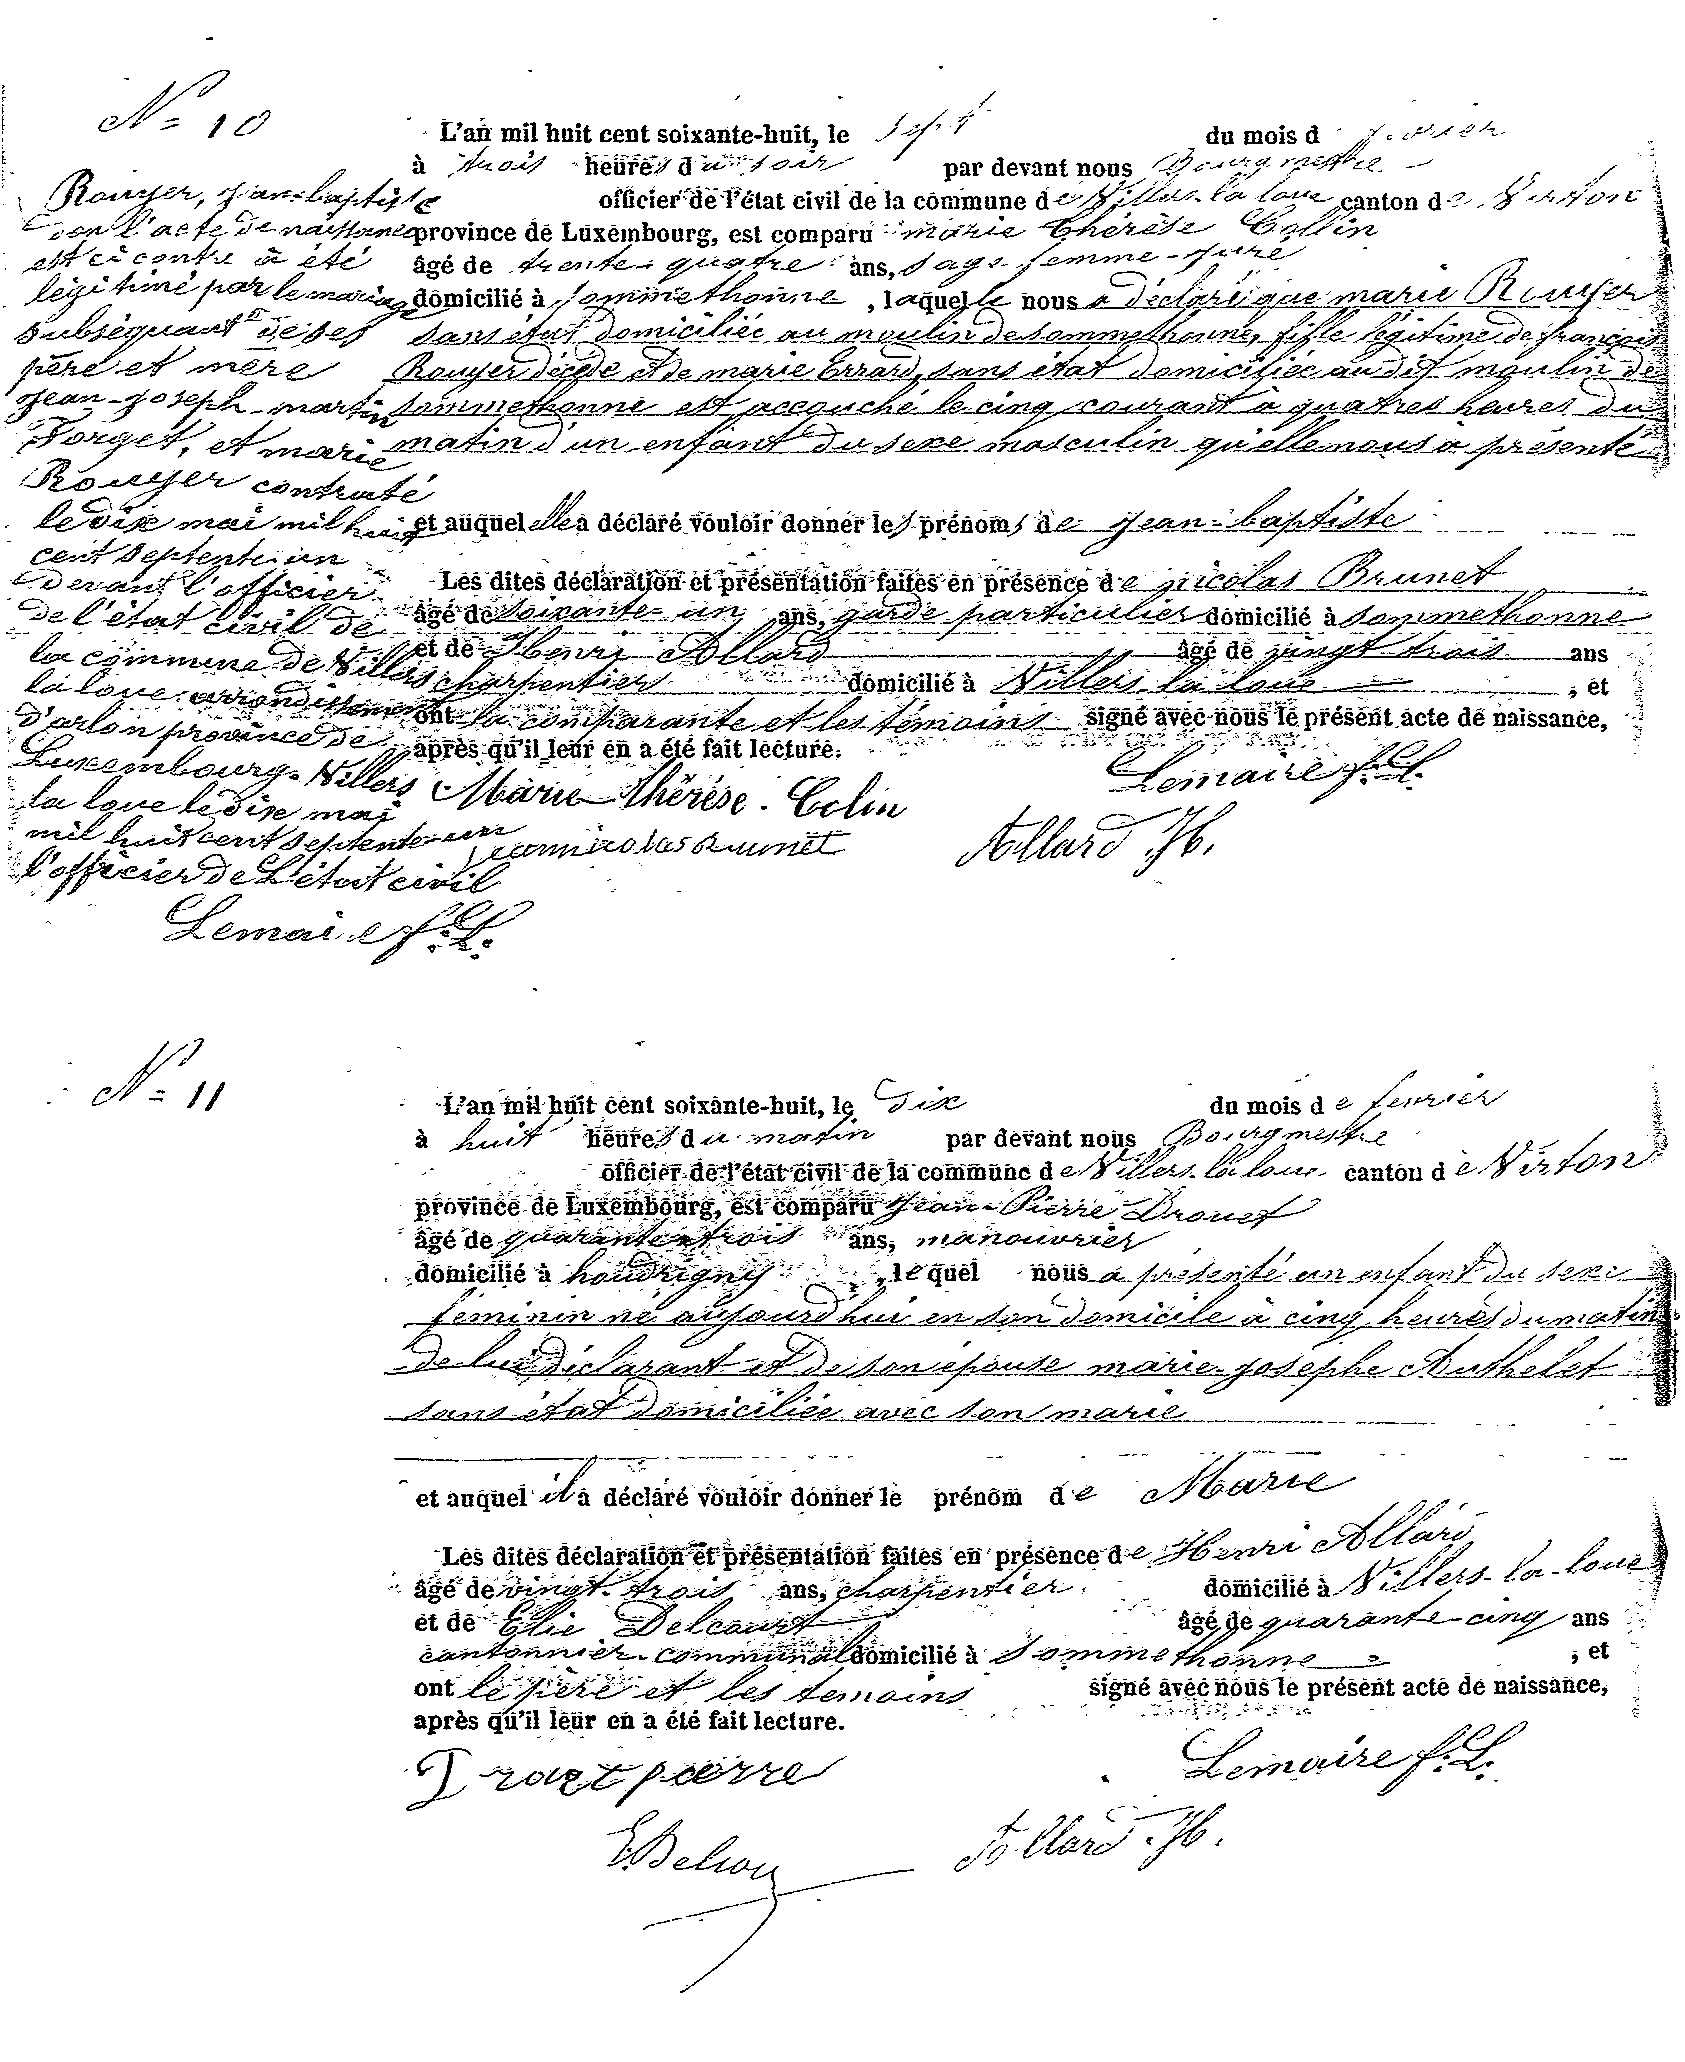 N° 10
L'an mil huit cent soixante-huit, le sept du mois d fevrier
à trois heures du soir par devant nous Bourgmestre
officier de l'état civil de la commune de Villers-la loue canton de Virton
province de Luxembourg, est comparu marie Thérèse Collin
âgé de trente-quatre ans, sage-femme-juré
domicilié à sommethonne, laquelle nous a déclaré que marie Rouyer
sans état domiciliée au moulin de sommethonne, fille légitime de françois
Rouyer décédé et de marie Errard, sans état domiciliée au dit moulin de
sommethonne est accouché le cinq courant à quatres heures du
matin d'un enfant du sexe masculin qu'elle nous a présenté
et auquel elle a déclaré vouloir donner les prénoms de jean-baptiste
Les dites déclaration et présentation faites en présence de nicolas Brunet
âgé de soixante-un ans, garde particulier domicilié à sommethonne
et de Henri Allard âgé de vingt trois ans
charpentier domicilié à Villers la loue, et
ont la comparante et les témoins signé avec nous le présent acte de naissance,
après qu'il leur en a été fait lecture.
Lemaire f. L.
Marie-Thérèse. Colin
jeannicolas Brunet
Allard H.
Rouyer, jean-baptiste
don l'acte de naissance
est ci contre à été
légitimé par le mariage
subséquant de ses
père et mère
jean-joseph-martin
Forget, et marie
Rouyer contracté
le dix mai mil huit
cent septente-un
devant l'officier
de l'état civil de
la commune de Villers
la loue arrondissement
d'arlon province de
Luxembourg. Villers
la loue le dix mai
mil huit cent septente-un
l'officier de L'état civil
Lemaire f. L.
N° 11
L'an mil huit cent soixante-huit, le dix du mois de fevrier
à huit heures du matin par devant nous Bourgmestre
officier de l'état civil de la commune de Villers-la loue canton de Virton
province de Luxembourg, est comparu jean-Pierre Drouet
âgé de quarante-trois ans, manouvrier
domicilié à houdrigny, lequel nous a présenté un enfant du sexe
feminin né aujourd'hui en son domicile à cinq heures du matin
de lui déclarant et de son épouse marie-josephe Authelet
sans état domiciliée avec son marie
et auquel il a déclaré vouloir donner le prénom de Marie
Les dites déclaration et présentation faites en présence de Henri Allard
âgé de vingt-trois ans, charpentier domicilié à Villers-la-loue
et de Elie Delcourt âgé de quarante-cinq ans
cantonnier-communal domicilié à sommethonne, et
ont le père et les temoins signé avec nous le présent acte de naissance,
après qu'il leur en a été fait lecture.
pierre
Lemaire f. L.
Allard H.